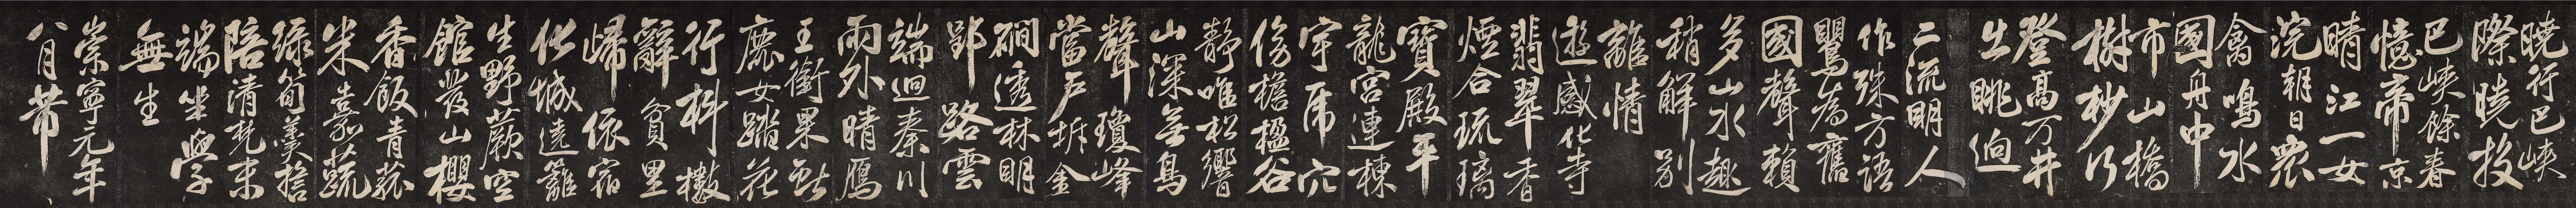 曉行巴峽
際曉投
巴峽餘春
憶帝京
晴江一女
浣朝日衆
禽鳴水
國舟中
市山橋
樹杪行
登高万井
出眺迥
二流明人
作殊方語
鶯為舊
國聲賴
多山水趣
稍解別
離情
遊感化寺
翡翠香
煙合琉璃
寶殿平
龍宮連棟
宇虎穴
傍檐楹谷
靜唯松響
山深無鳥
聲瓊峰
當戶拆金
澗透林明
郢路雲
端迥秦川
雨外晴鴈
王銜果獻
鹿女踏花
行枓擻
辭貧里
歸依宿
化城遶籬
生野蕨空
館發山櫻
香飯青菰
米嘉蔬
綠筍羹
陪清梵末
端坐學
無生
崇寧元年
八月芾